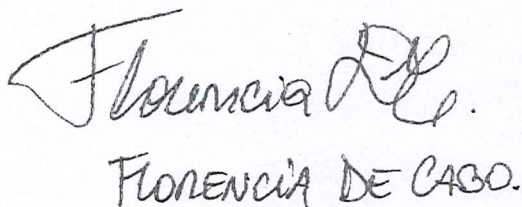 Florencia DC.
FLORENCIA DE CABO.